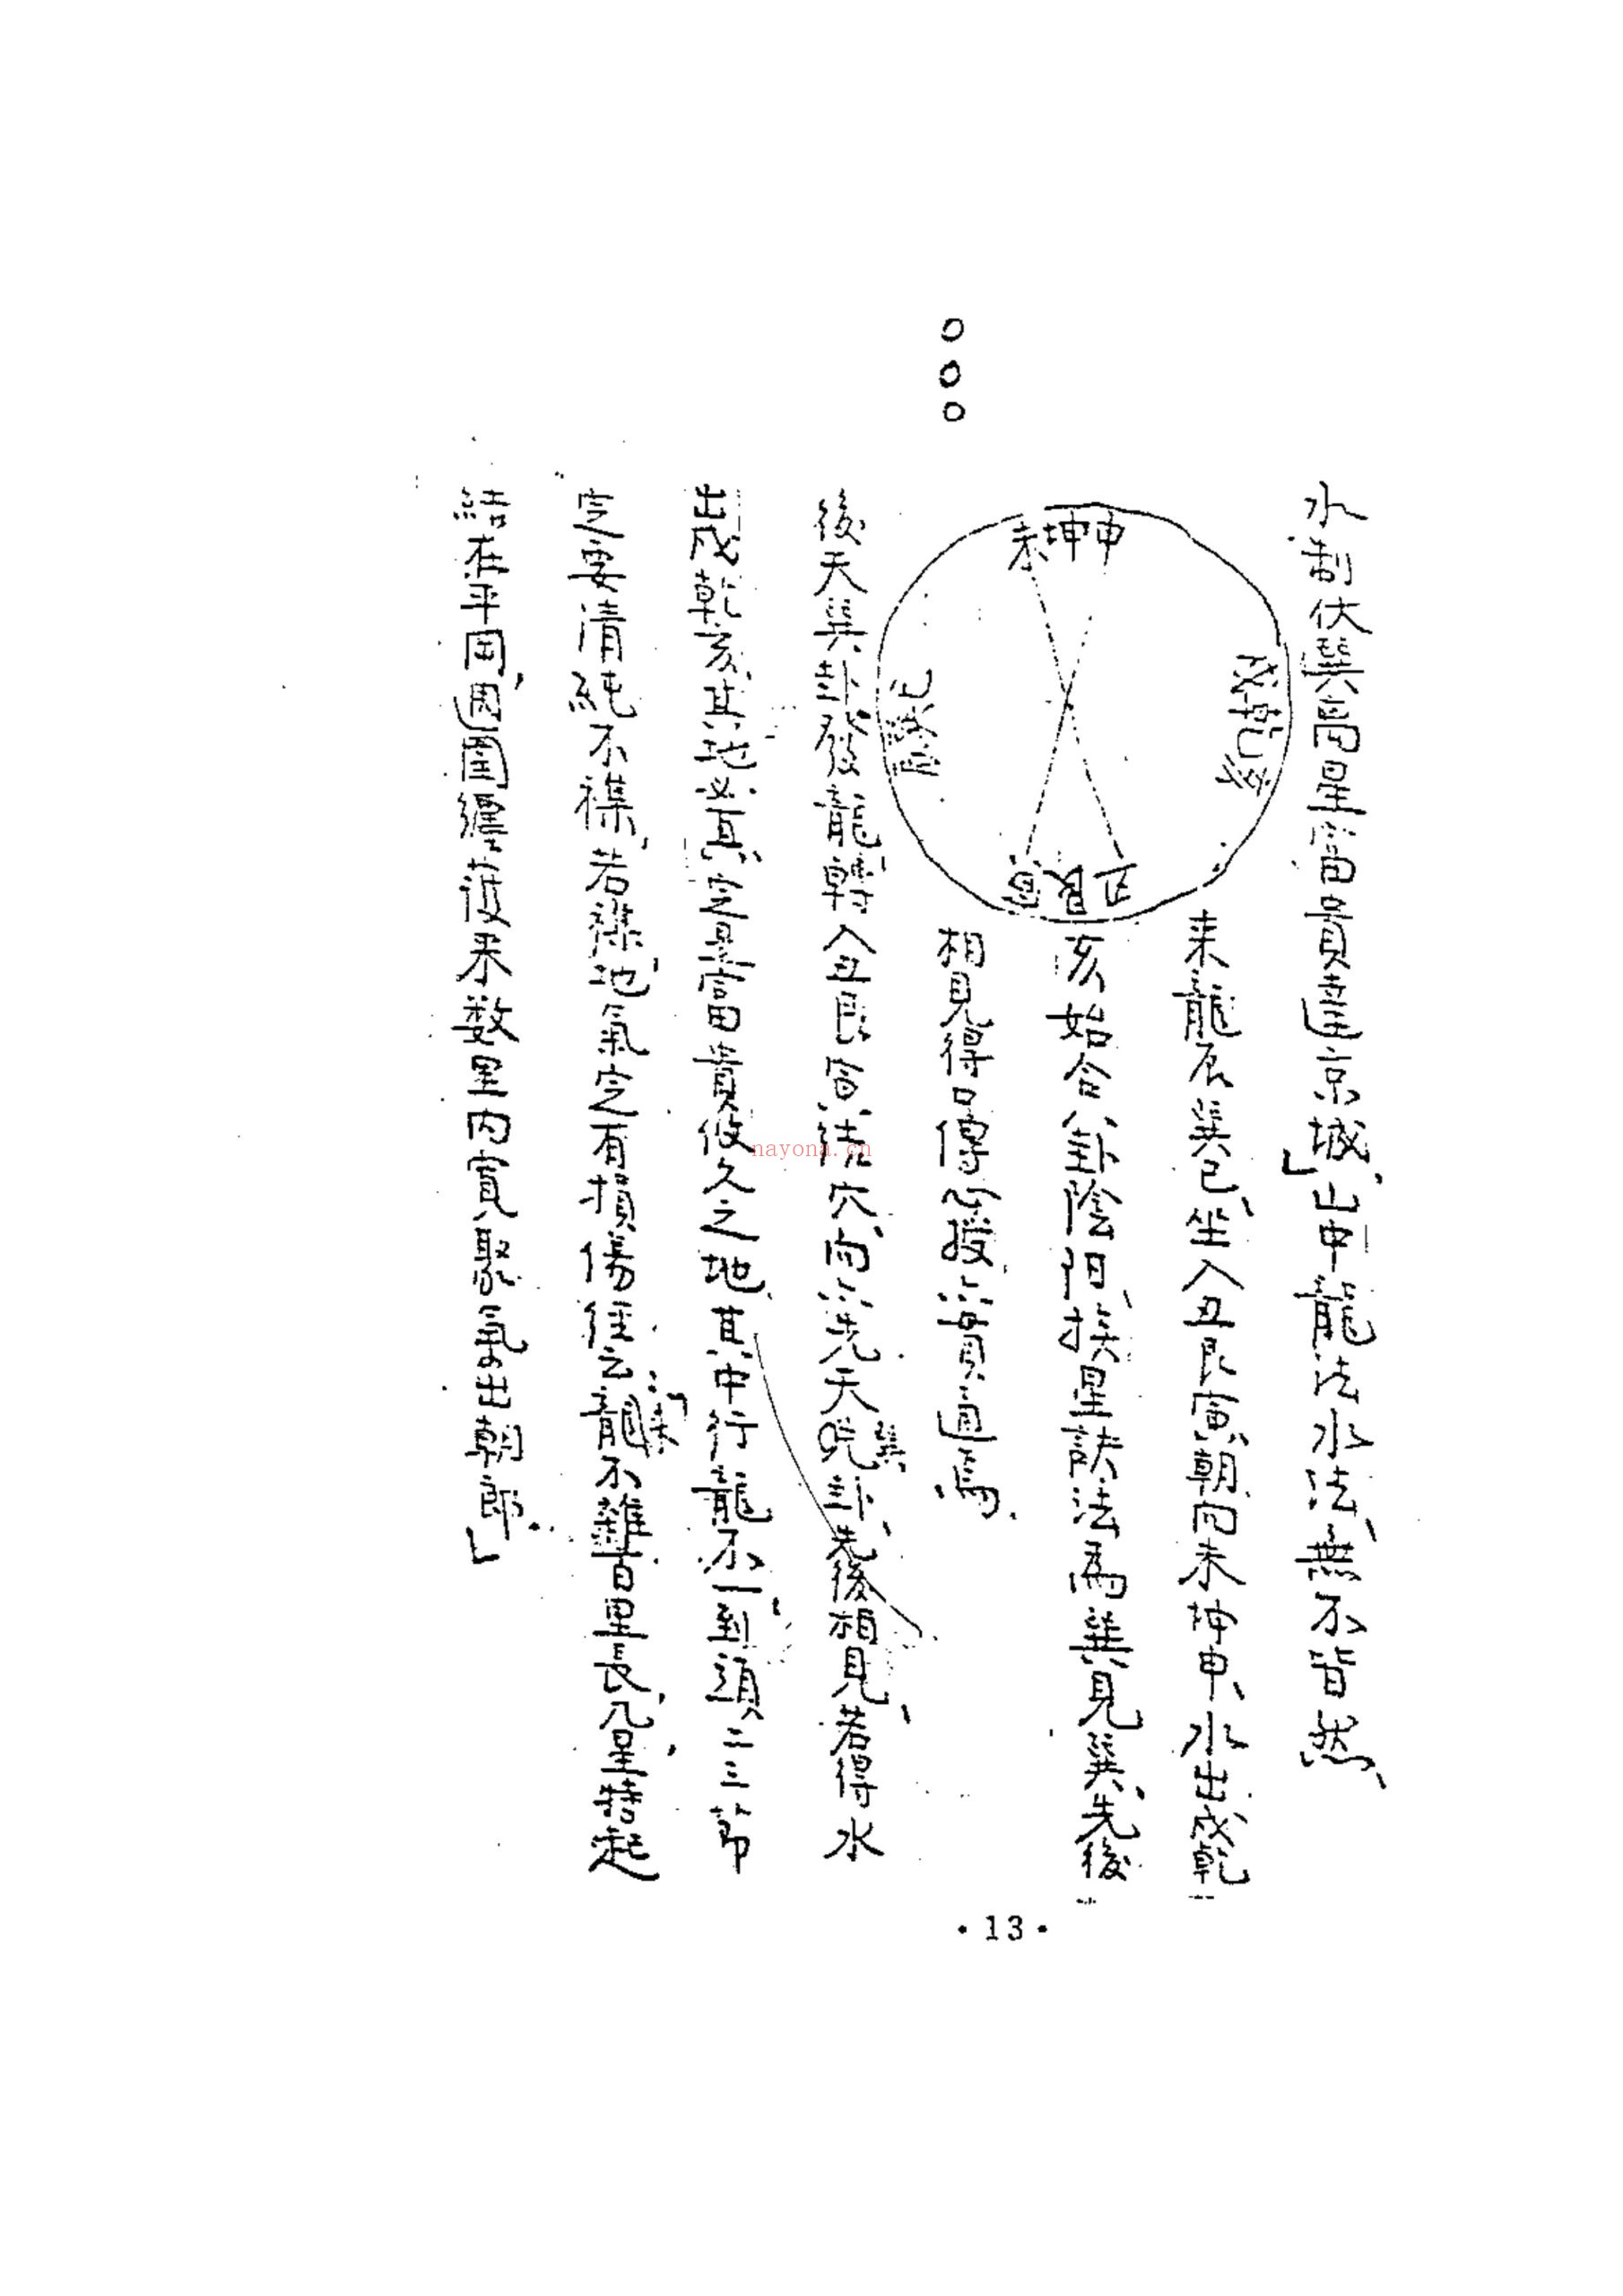 水制伏巽高星富貴達京城」山中龍法水法、無不皆然、
未坤申
丑艮寅
來龍辰巽巳、坐入丑艮寅、朝向未坤申、水出戌乾
亥始合八卦陰陽、挨星訣法為巽見巽、先後
相見得口傳心授六實通焉.
○○○
後天巽卦發龍轉入丑艮寅結穴、向六先天兌卦、先後相見、若得水
巽
出戌乾亥其地必真、定是富貴攸久之地其中行龍不一、到頭二三節
定要清純不襍、若襍地氣定有損傷徃云龍不雜百里長、凡星特起
結在平田、週圍纏護來数里内寛聚氣出朝郎.」
nayona.cn
·13·